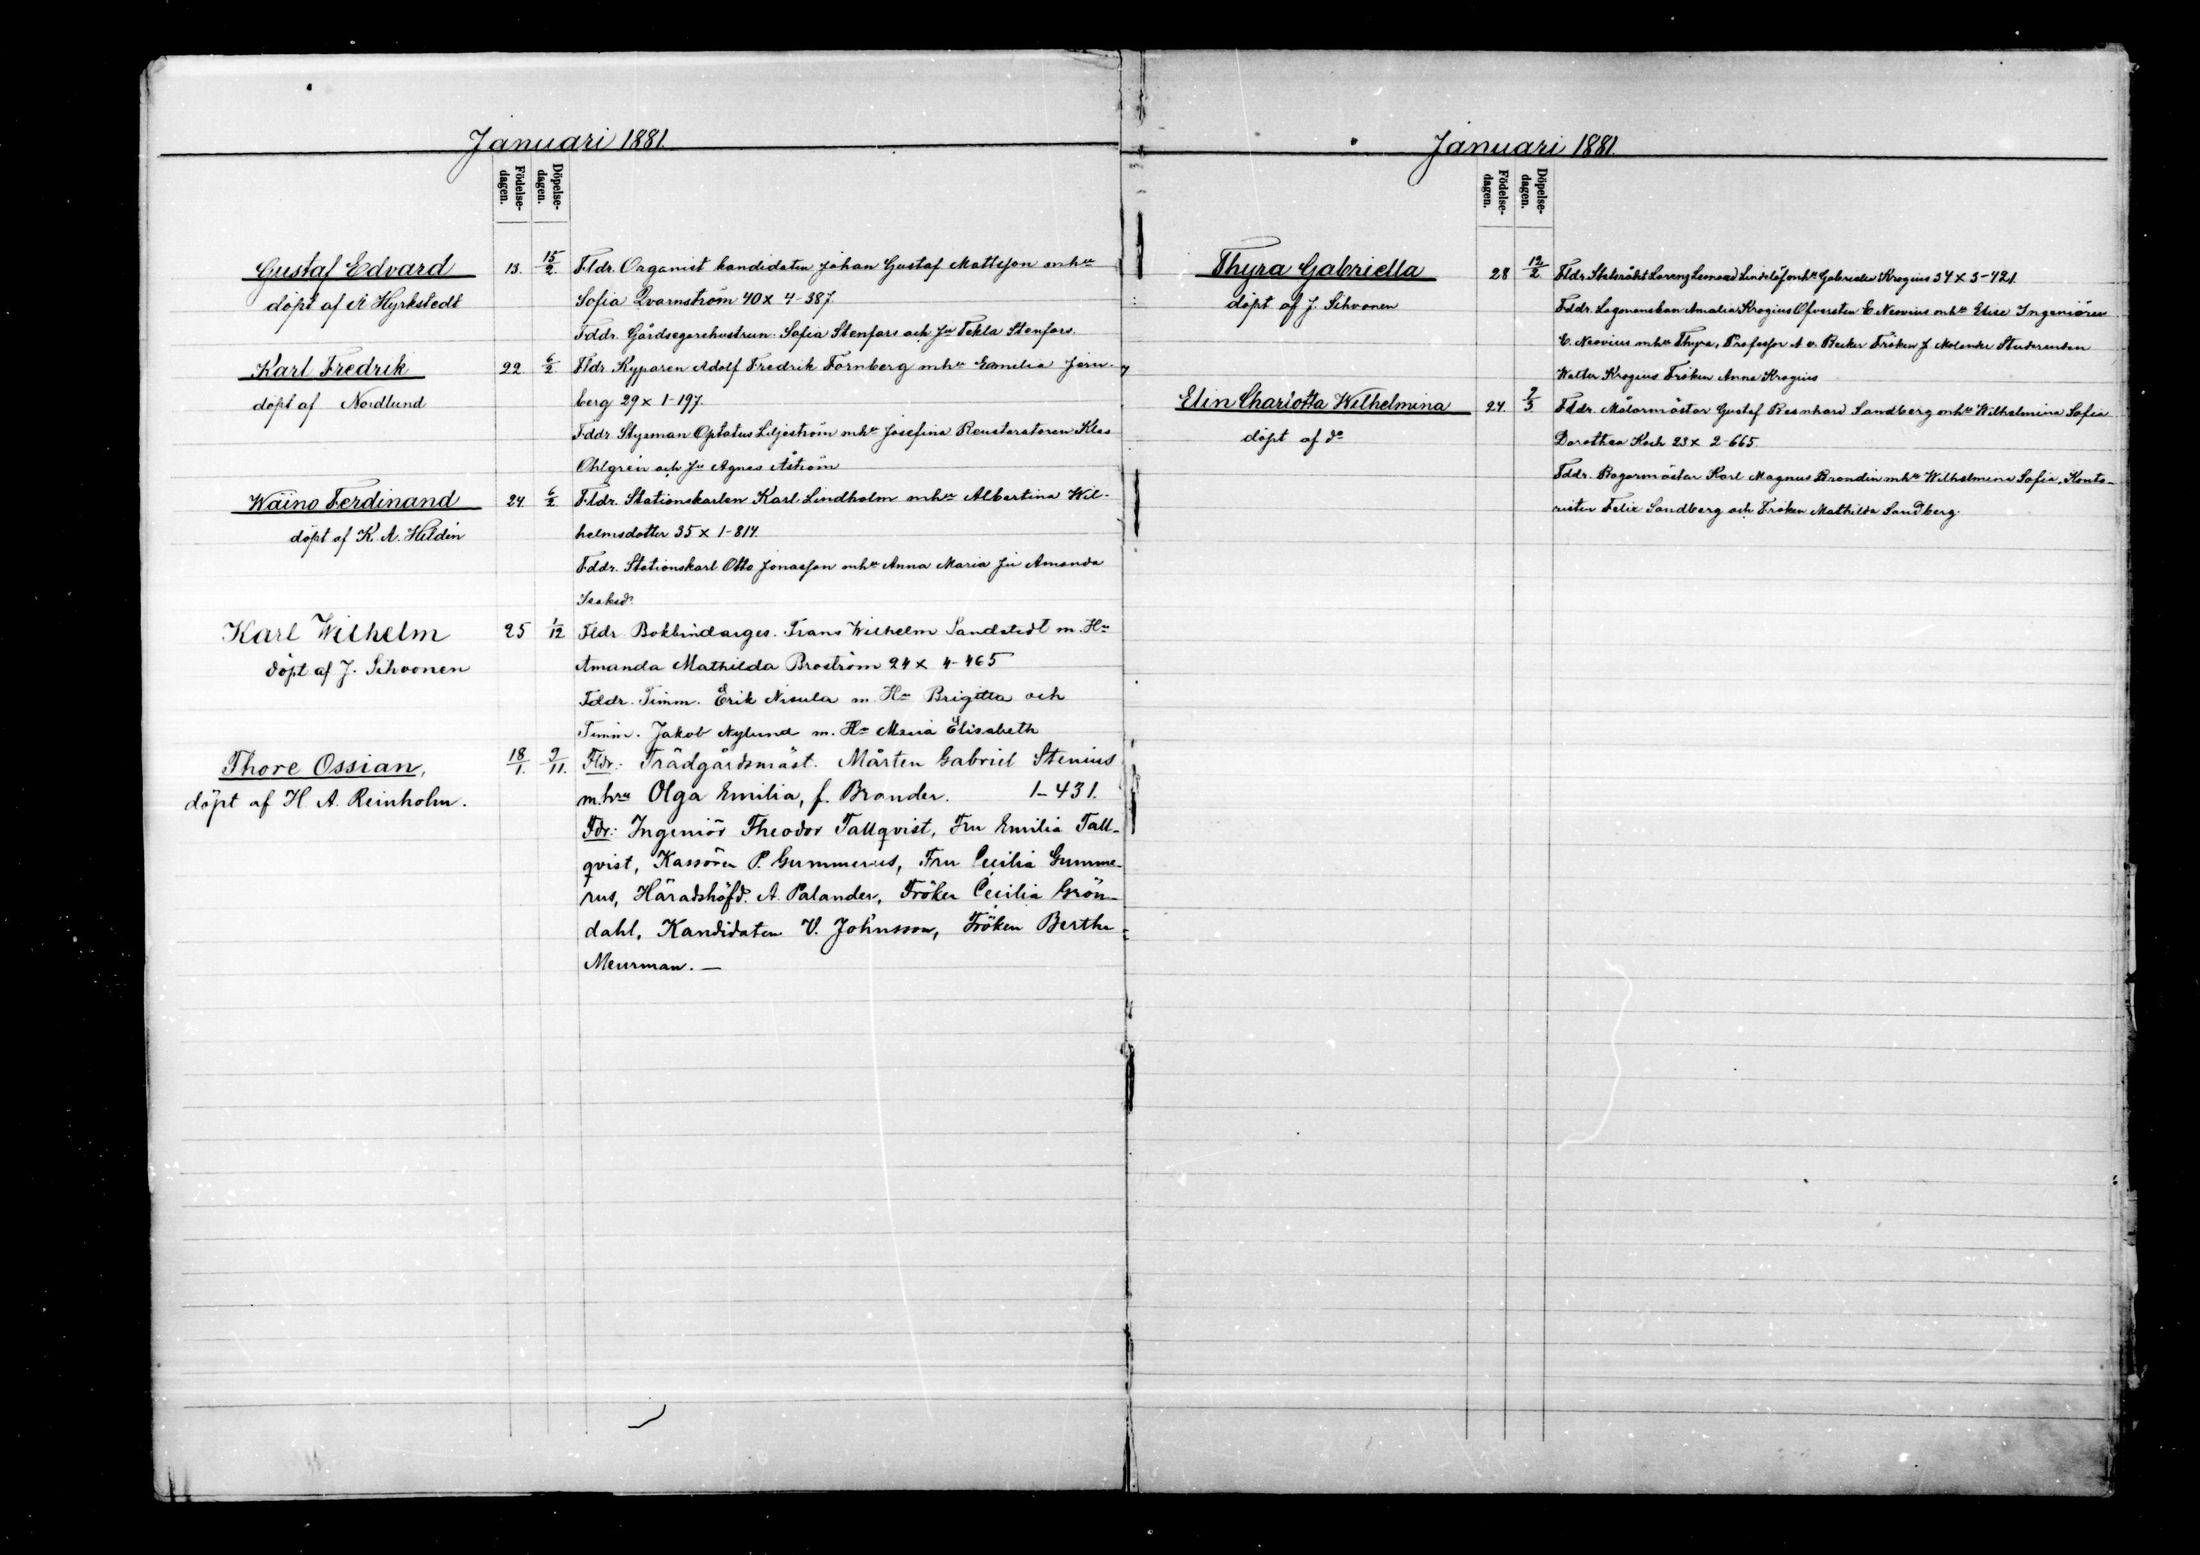 Januari 1881.
Födelse-
dagen.
Döpelse-
dagen.
Gustaf Edvard
döpt af A Hyrkstedt
13. 15/2. Fldr. Organist kandidaten Johan Gustaf Mattsson mhu
Sofia Qvarnström 40 x 4-387.
Fddr. Gårdsegarehustrun Sofia Stenfors och Ju Tekla Stenfors.
Karl Fredrik
döpt af Nordlund
22. 6/2 Fldr. Kyparen Adolf Fredrik Fornberg mhu Emilia Jern-
berg 29 x 1-197.
Fddr Styrman Optatus Liljeström mhu Josefina Restoratoren Klas
Ohlgrén och Ju Agnes Åström
Wäinö Ferdinand
döpt af K. A. Hildén
24. 6/2 Fldr. Stationskarlen Karl Lindholm mhu Albertina Wil-
helmsdotter 35 x 1-814.
Fddr. Stationskarl Otto Jonasson mhu Anna Maria Ju Amanda
Isaksdr
Karl Wilhelm
döpt af J. Sihvonen
25 1/12 Fldr. Bokbindarges. Frans Wilhelm Sandstedt m. Hu
Amanda Mathilda Broström 24 x 4-465
Fddr. Timm. Erik Nisula m. Hu Brigitta och
Timm. Jakob Nylund m. Hu Maria Elisabeth
Thore Ossian,
döpt af H. A. Reinholm.
18/1. 9/11. Fldr: Trädgårdsmäst. Mårten Gabriel Stenius
m.hru Olga Emilia, f. Brander. 1-431.
Fdr: Ingeniör Theodor Tallqvist, Fru Emilia Tall-
qvist, Kassören P. Gummerus, Fru Cecilia Gumme-
rus, Häradshöfd. A. Palander, Fröken Cecilia Grön-
dahl, Kandidaten V. Johnsson, Fröken Bertha
Meurman. —
Januari 1881.
Födelse-
dagen.
Döpelse-
dagen.
Thyra Gabriella
döpt af J. Sihvonen
28 12/2 Fldr. Statsrådet Lorenz Leonard Lindelöf mhu Gabriela Krogius 34 x 3-421.
Fddr. Lagmanskan Amalia Krogius Öfversten E Neovius mhu Elise Ingeniören
C. Neovius mhu Thyra, Professor A v. Becker Fröken J Molander Studeranden
Walter Krogius Fröken Anna Krogius
Elin Charlotta Wilhelmina
döpt af do
24. 7/3 Fldr. Målarmästar Gustaf Reinhard Sandberg mhu Wilhelmina Sofia
Dorothea Koch 23 x 2-665.
Fddr. Bagarmästar Karl Magnus Brondin mhu Wilhelmina Sofia, Konto-
risten Felix Sandberg och Fröken Mathilda Sandberg.